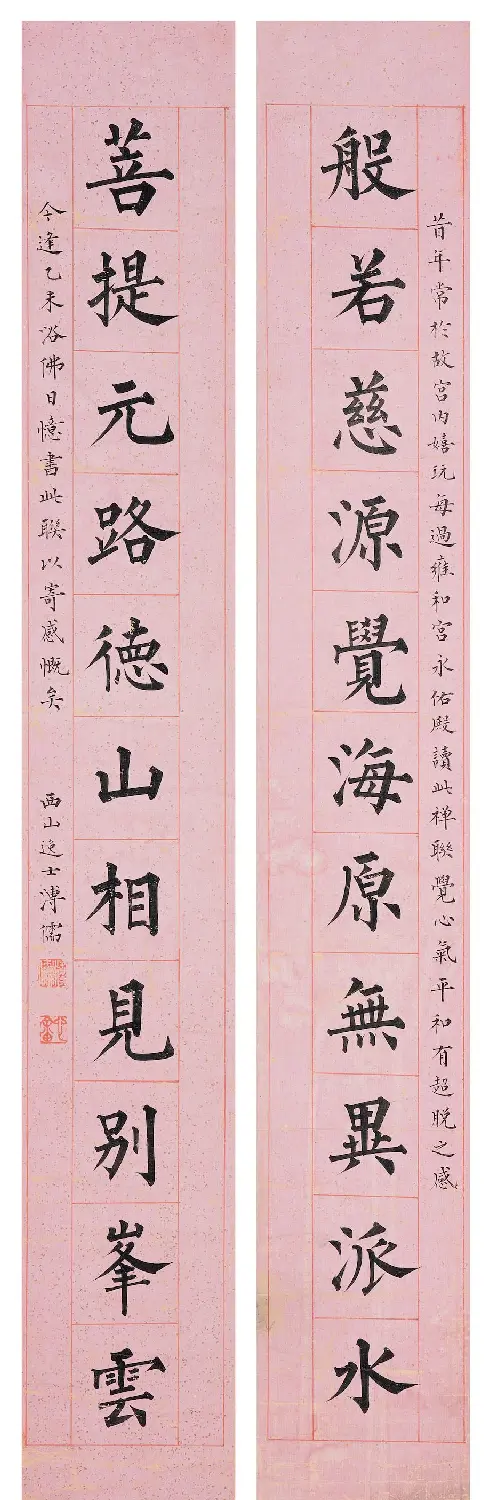 昔年常於故宮內嬉玩每過雍和宮永佑殿讀此禅聯覺心氣平和有超脫之感
般若慈源覺海原無異派水
菩提元路德山相見別峯雲
今逢乙未浴佛日憶書此聯以寄感慨矣 西山逸士溥儒